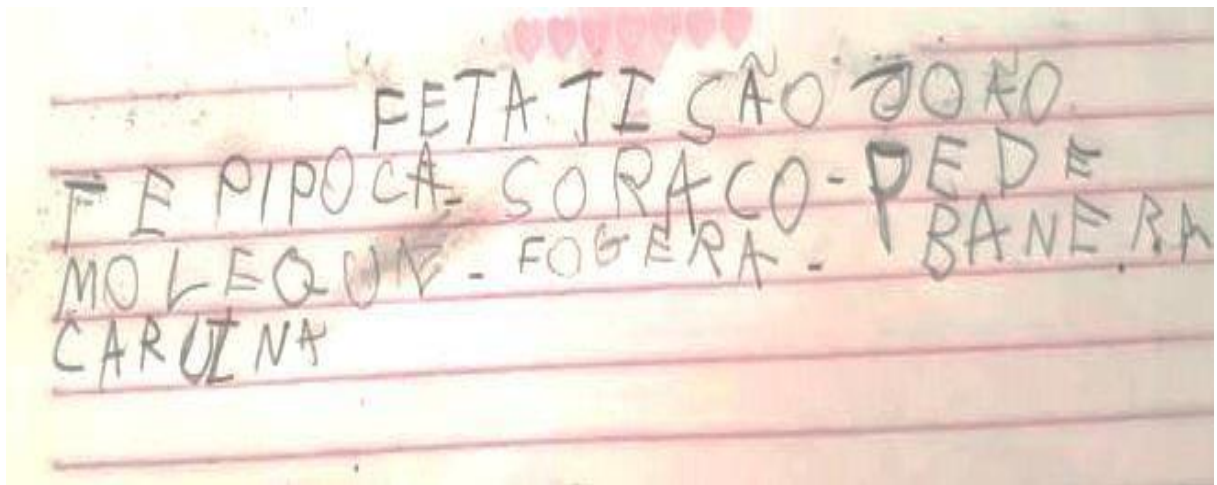 FETA JI SÃO JOÃO
TE PIPOCA - SORACO - PEDE
MOLEQUE - FOGERA - BANERA
CARUINA